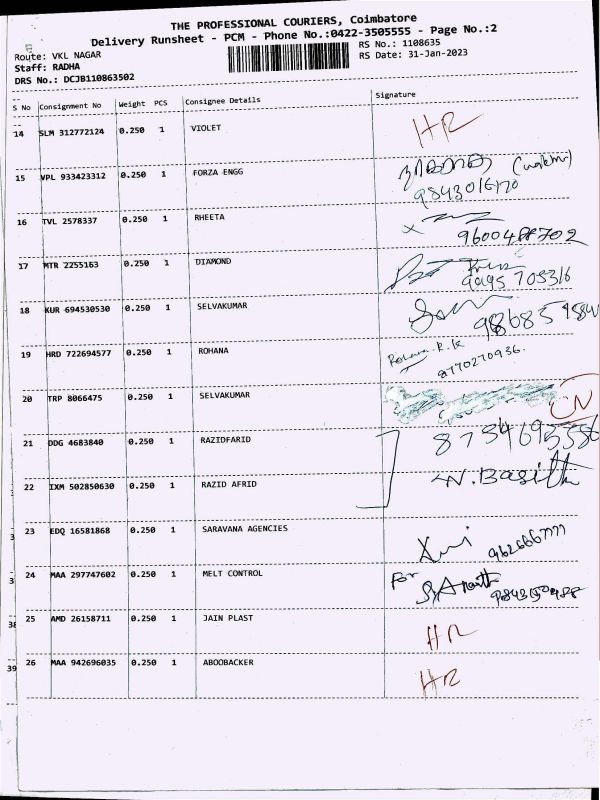 THE PROFESSIONAL COURIERS, Coimbatore
Delivery Runsheet - PCM - Phone No.:0422-3505555 - Page No.:2
Route: VKL NAGAR
RS No.: 1108635
Staff: RADHA
RS Date: 31-Jan-2023
DRS No.: DCJB110863502
S No Consignment No Weight PCS Consignee Details Signature
14 SLM 312772124 0.250 1 VIOLET HR
15 VPL 933423312 0.250 1 FORZA ENGG
16 TVL 2578337 0.250 1 RHEETA
9600488702
17 MTR 2255163 0.250 1 DIAMOND
9995 705316
18 KUR 694530530 0.250 1 SELVAKUMAR
19 HRD 722694577 0.250 1 ROHANA Rohana.R.K
8770270936.
20 TRP 8066475 0.250 1 SELVAKUMAR
21 DDG 4683840 0.250 1 RAZIDFARID
22 IXM 502850630 0.250 1 RAZID AFRID N.Basith
23 EDQ 16581868 0.250 1 SARAVANA AGENCIES
24 MAA 297747602 0.250 1 MELT CONTROL For
25 AMD 26158711 0.250 1 JAIN PLAST HR
26 MAA 942696035 0.250 1 ABOOBACKER HR
38
39